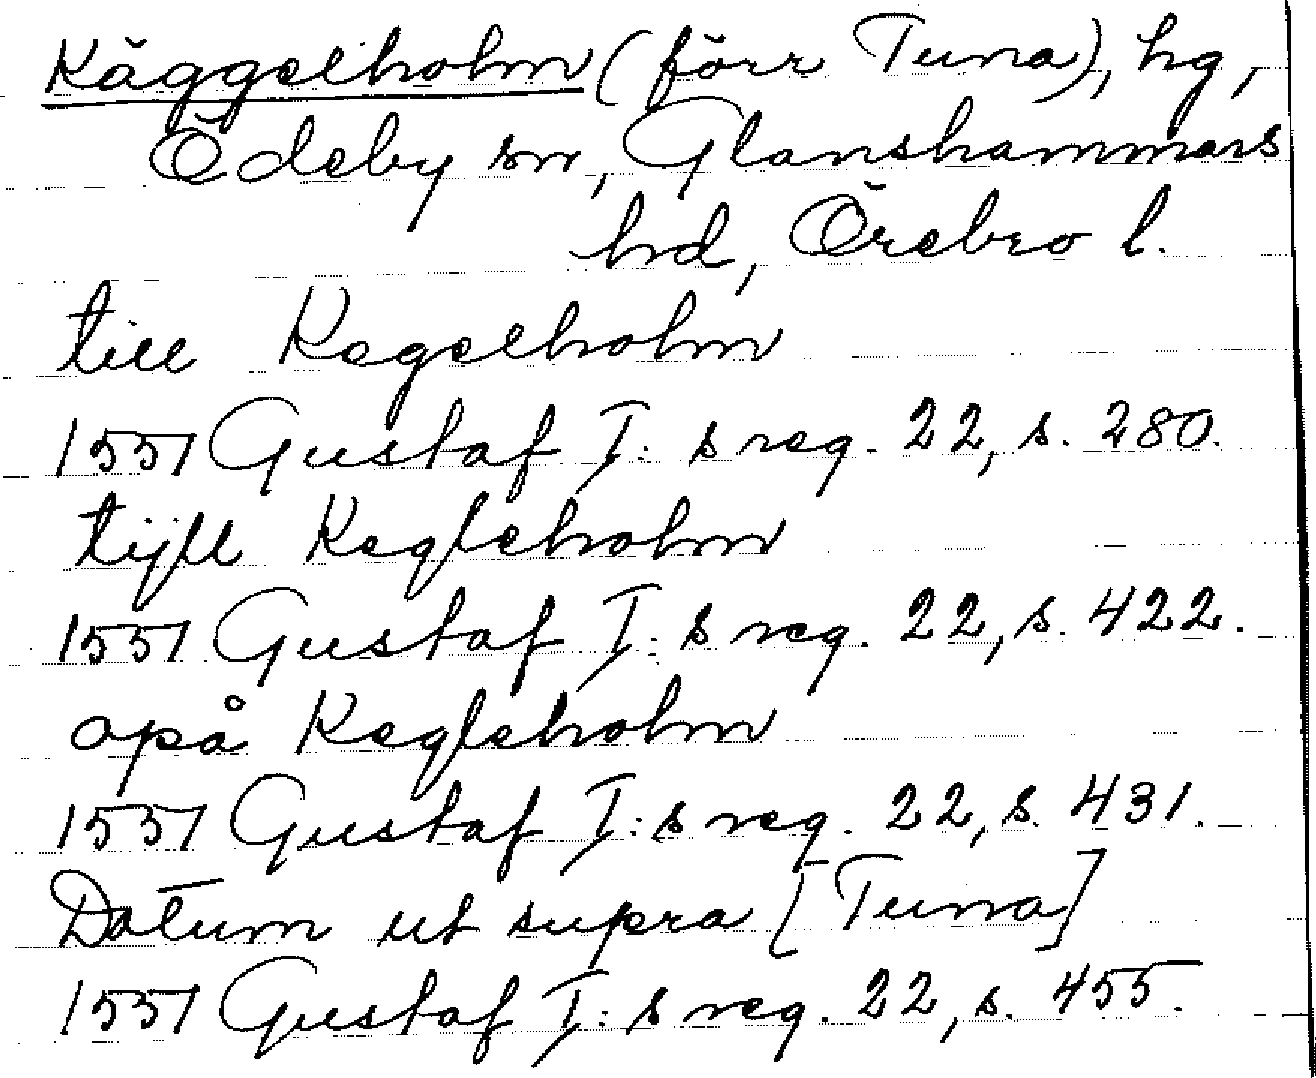 Käggelholm (förr Tuna), hg,
Ödeby sn, Glanshammars
hd, Örebro l.
till Kegelholm
1551 Gustaf I:s reg. 22, s. 280.
tijll Kegleholm
1551 Gustaf I:s reg. 22, s. 422.
opå Kegleholm
1551 Gustaf I:s reg. 22, s. 431.
Datum ut supra [Tuna]
1551 Gustaf I:s reg. 22, s. 455.